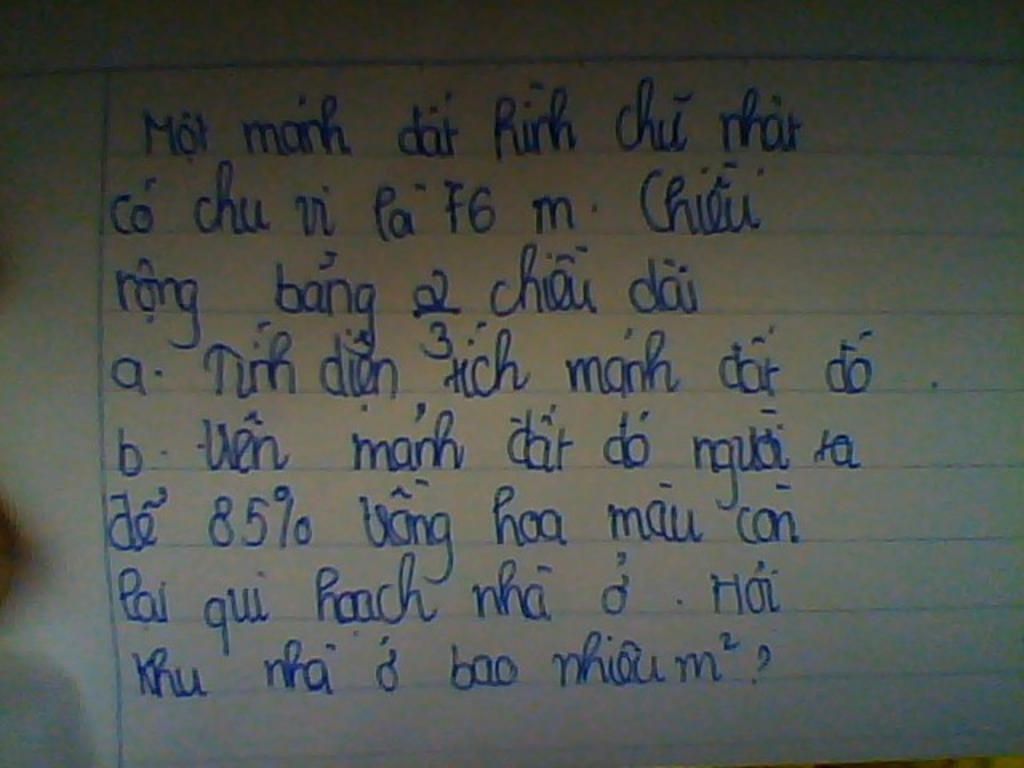 Một mảnh đất hình chữ nhật
có chu vi là 76 m. Chiều
rộng bằng 2 chiều dài
3
a. Tính diện tích mảnh đất đó.
b. Trên mảnh đất đó người ta
để 85% trồng hoa màu còn
lại qui hoạch nhà ở. Hỏi
khu nhà ở bao nhiêu m²?